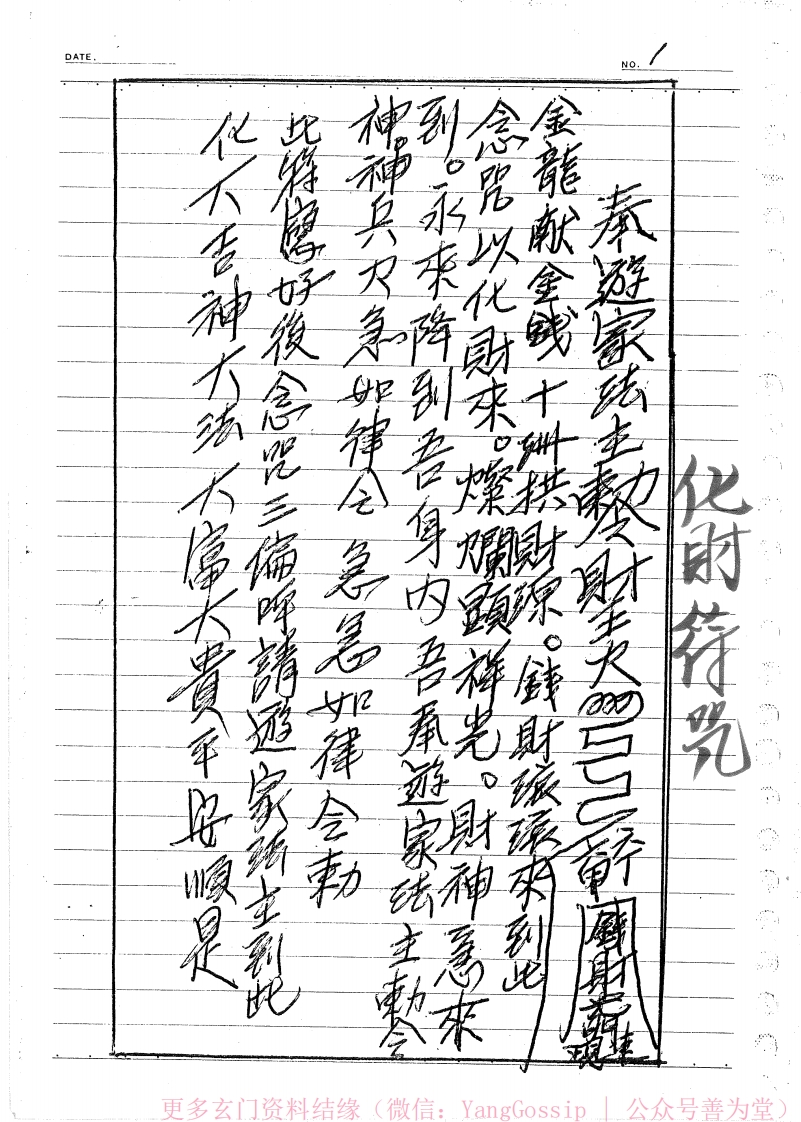 DATE.
NO. 1
化財符咒
奉遊家法主勅令財王火 斬 錢財
金龍献金錢十洲拱財源。錢財滾滾來到此
念咒以化財來。燦爛顕祥光。財神急來
到。永來降到吾身内吾奉遊家法主勅令
神。神兵火急如律令 急急如律令勅
此符 好後念咒三偏呼請遊家法主到此
化大吉神大法大富大貴平安順是
更多玄门资料结缘（微信：YangGossip | 公众号善为堂）